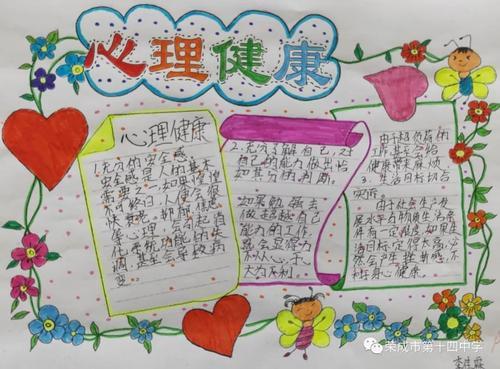 心理健康
心理健康
1.充分的安全感
安全感是人的基本
需要之一,如果惶惶
不可终日,人便会很
快衰老。抑郁、焦虑
等心理,会引起消
化系统功能的失
调,甚至会导致病
变。
2.充分了解自己,对
自己的能力做出恰
如其分的判断。
如果勉强去
做超越自己
能力的工作,
就会显得力
不从心,于
大为不利。
由于超负荷的
健康带来麻烦。
3.生活目标切合
实际。
由于社会生产发
展水平与物质生活条
件有一定限度,如果生
活目标定得太高,必
然会产生挫折感,不
利于身心健康。
荣成市第十四中学